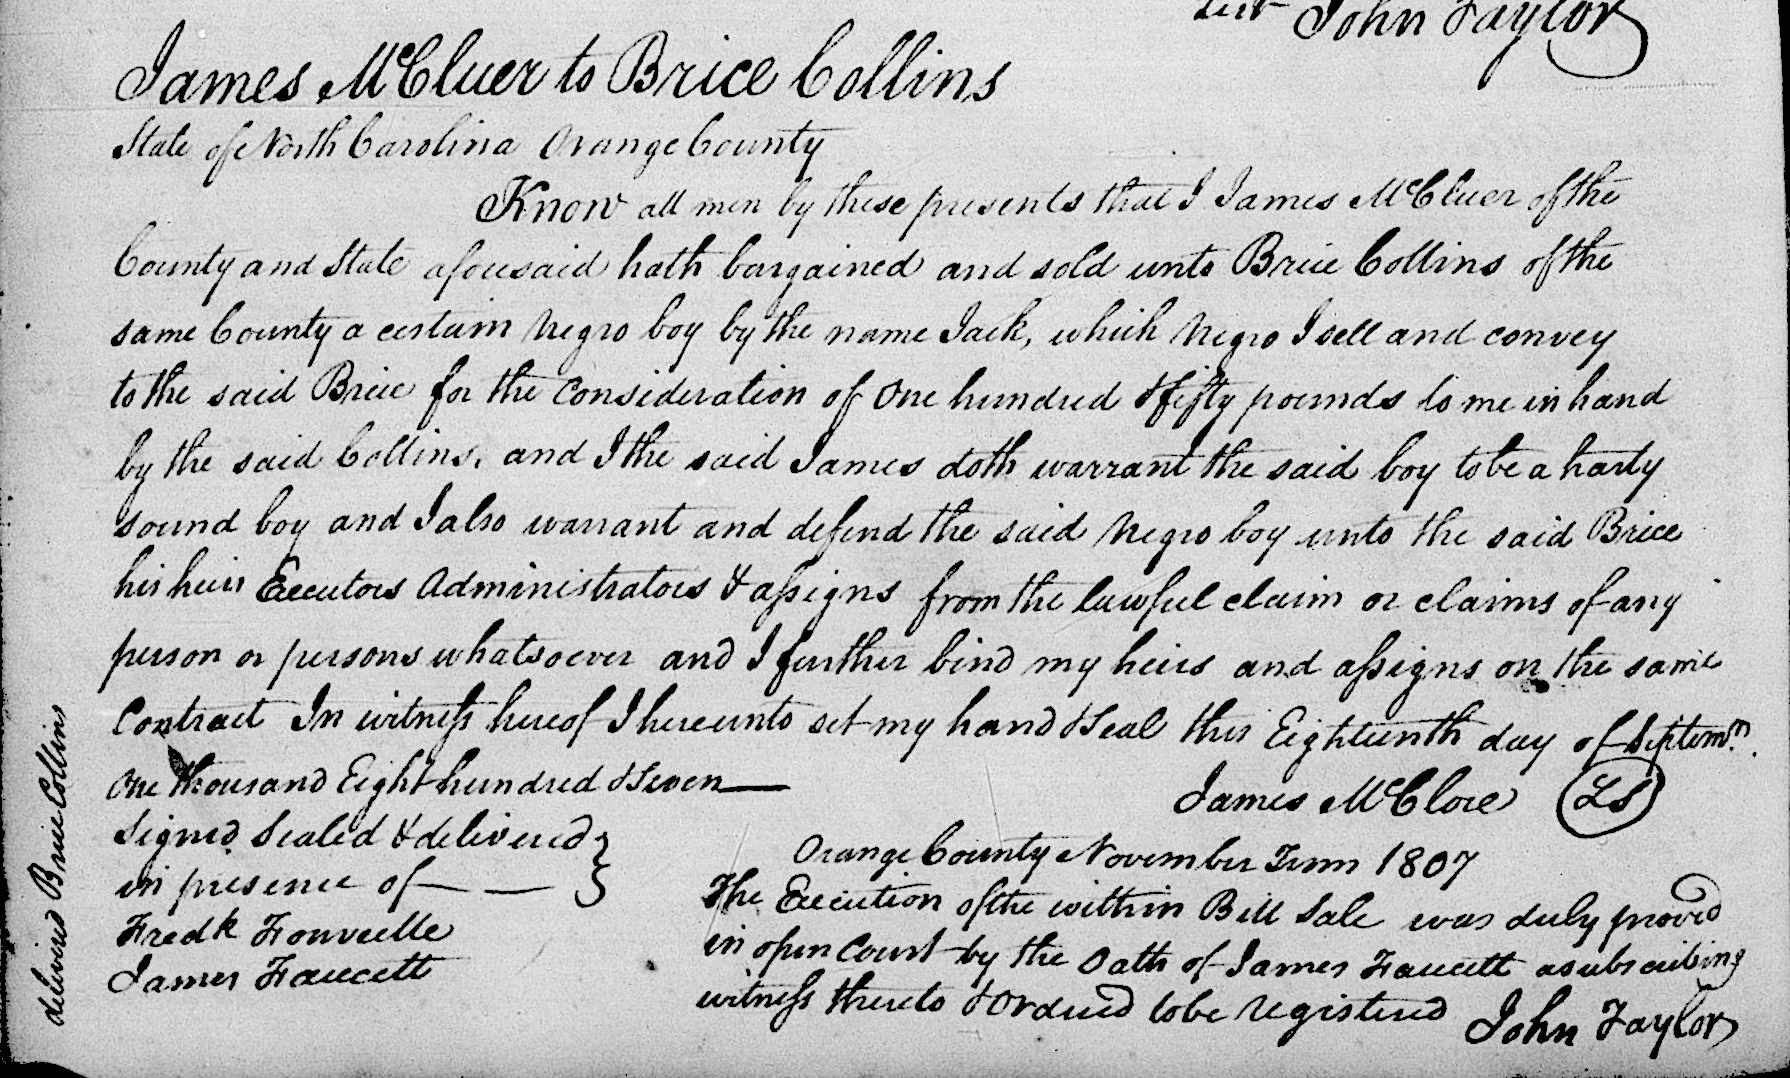 Test John Taylor
James McCluer to Brice Collins
State of North Carolina Orange County
Know all men by these presents that I James McCluer of the
County and State aforesaid hath bargained and sold unto Brice Collins of the
same County a certain Negro boy by the name Jack, which Negro I sell and convey
to the said Brice for the Consideration of One hundred & fifty pounds to me in hand
by the said Collins, and I the said James doth warrant the said boy to be a harty
sound boy and I also warrant and defend the said Negro boy unto the said Brice
his heirs Executors Administrators & assigns from the lawful claim or claims of any
person or persons whatsoever and I further bind my heirs and assigns on the same
Contract In witness hereof I hereunto set my hand & Seal this Eighteenth day of Septemr.
One thousand Eight hundred & Seven
James McClore LS
Signed Sealed & delivered
in presence of
Fredk Fonveille
James Faucett
Orange County November Term 1807
The Execution of the within Bill Sale was duly proved
in open Court by the Oath of James Faucett a subscribing
witness thereto & Ordered to be Registered John Taylor
delivered Brice Collins